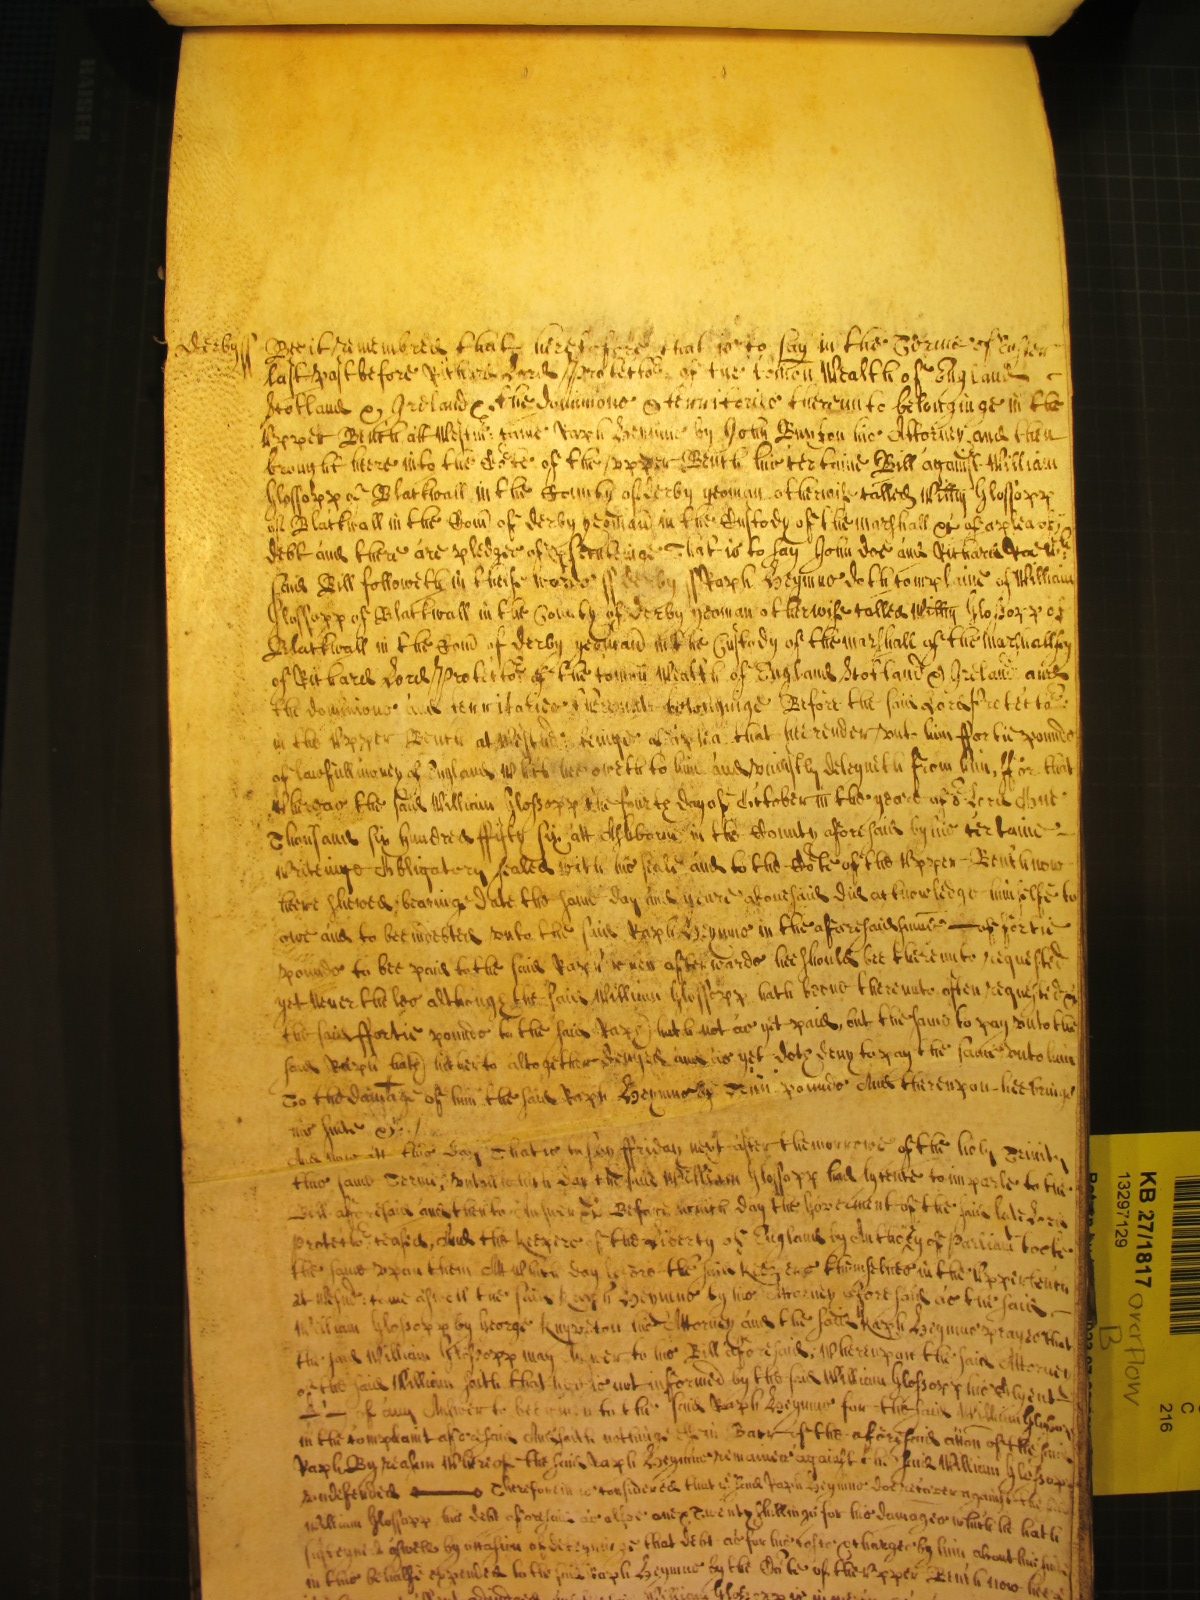 Derby ss Bee it remembred that heretofore that is to say in the Terme of Easter
last past before Richard Lord Protector of the Comon Wealth of England
Scotland & Ireland & the dominions & territories thereunto belonginge in the
Upper Bench att Westmr: came Raph Heynus by John Buxton his Attorney and then
brought here into the Corte of the upper Bench his certaine Bill against William
Glossopp of Blackwall in the County of derby yeoman otherwise called Willm Glossopp
of Blackwall in the Com of derby yeoman in the Custody of the marshall &c of a plea of
debt and there are pledges of prsecutinge That is to say John Doe and Richard Roe wch
said Bill followeth in theise words ss derby ss Raph Heynus doth complaine of William
Glossopp of Blackwall in the County of derby yeoman otherwise called Willm Glossopp of
Blackwall in the Com of derby yeoman in the Custody of the marshall of the Marshallsey
of Richard Lord Protector of the comon Wealth of England Scotland & Ireland and
the dominions and territories thereunto belonginge Before the said Lord Protector
in the Upper Bench at Westmr: beinge of a plea that hee render unto him ffortie pounds
of lawfull money of England which hee oweth to him and uniustly deteyneth from him, ffor that
Whereas the said William Glossopp the fourth day of October in the yeare of or Lord One
Thousand six hundred ffifty six att Ashborne in the County aforesaid by his certaine
Writeinge Obligatory sealed with his seale and to the Corte of the Upper Bench now
here shewed, bearinge date the same day and yeare aforesaid did acknowledge himselfe to
owe and to bee indebted unto the said Raph Heynus in the aforesaid sume of fortie
pounds to bee paid to the said Raph when afterwards hee should bee thereunto requested
yet Neverthelesse althoughe the said William Glossopp hath beene thereunto often requested &c
the said ffortie pounds to the said Raph hath not as yet paid, but the same to pay unto the
said Raph hath hitherto altogether denyed and as yet doth deny to pay the same unto him
To the damage of him the said Raph Heynus of Tenn pounds And thereupon hee brings
his suite &c /
And now att this day That is to say ffriday next after the morrowe of the holy Trinity
this same Terme, untill which day the said William Glossopp had lycence to imparle to the
Bill aforesaid and then to Answer &c Before which day the Goverment of the said late Lord
Protector ceased, And the keepers of the Liberty of England by Authority of Parliamt tooke
the same upon them Att which day before the said keepers themselves in the Upper bench
at Westmr: came aswell the said Raph Heynus by his Attorney aforesaid as the said
William Glossopp by George Knyveton his Attorney and the said Raph Heynus prayes that
the said William Glossopp may answer to his Bill aforesaid, Whereupon the said Attorney
of the said William saith that hee is not informed by the said William Glossopp his Clyent
of any Answer to bee given to the said Raph Heynus for the said William Glossopp
in the complaint aforesaid And saith nothinge in Barr of the aforesaid accon of the said
Raph By reason Whereof the said Raph Heynus remaines against the said William Glossopp
undefended Therefore it is considered that the said Raph Heynus doe recover against the said
William Glossopp his debt aforesaid as alsoe Twenty shillings for his damages which he hath
susteyned aswell by occasion of deteyninge that debt as for his costs & charges by him about his suite
in this behalfe expended to the said Raph Heynus by the Corte of the Upper Bench now here